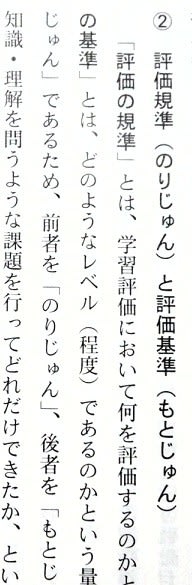 ② 評価規準(のりじゅん)と評価基準(もとじゅん)
「評価の規準」とは、学習評価において何を評価するのかと
の基準」とは、どのようなレベル(程度)であるのかという量
じゅん」であるため、前者を「のりじゅん」、後者を「もとじ
知識・理解を問うような課題を行ってどれだけできたか、とい